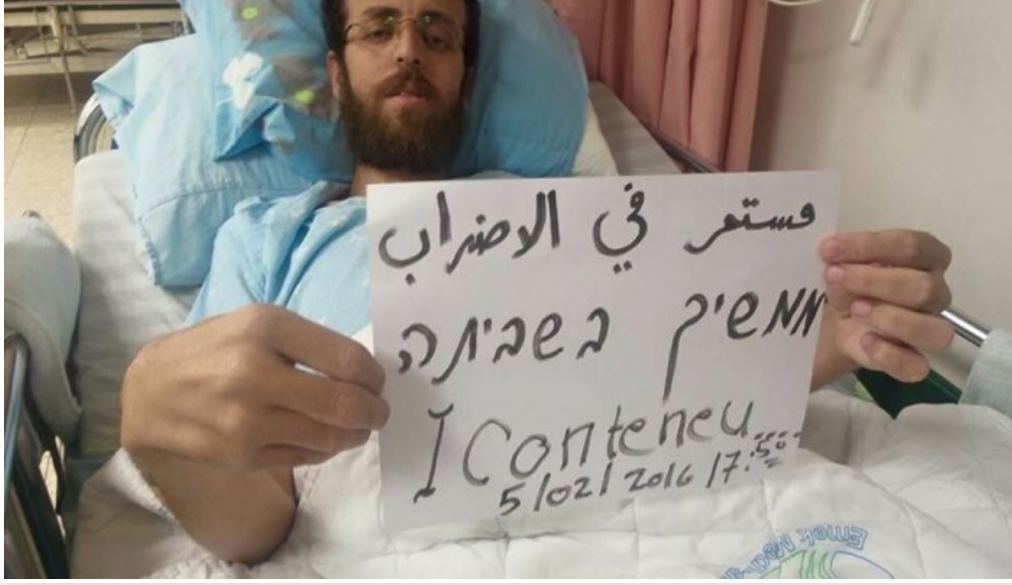 مستمر في الاضراب
ממשיך בשביתה
I Conteneu...
5/02/2016 17:50
Emek Med